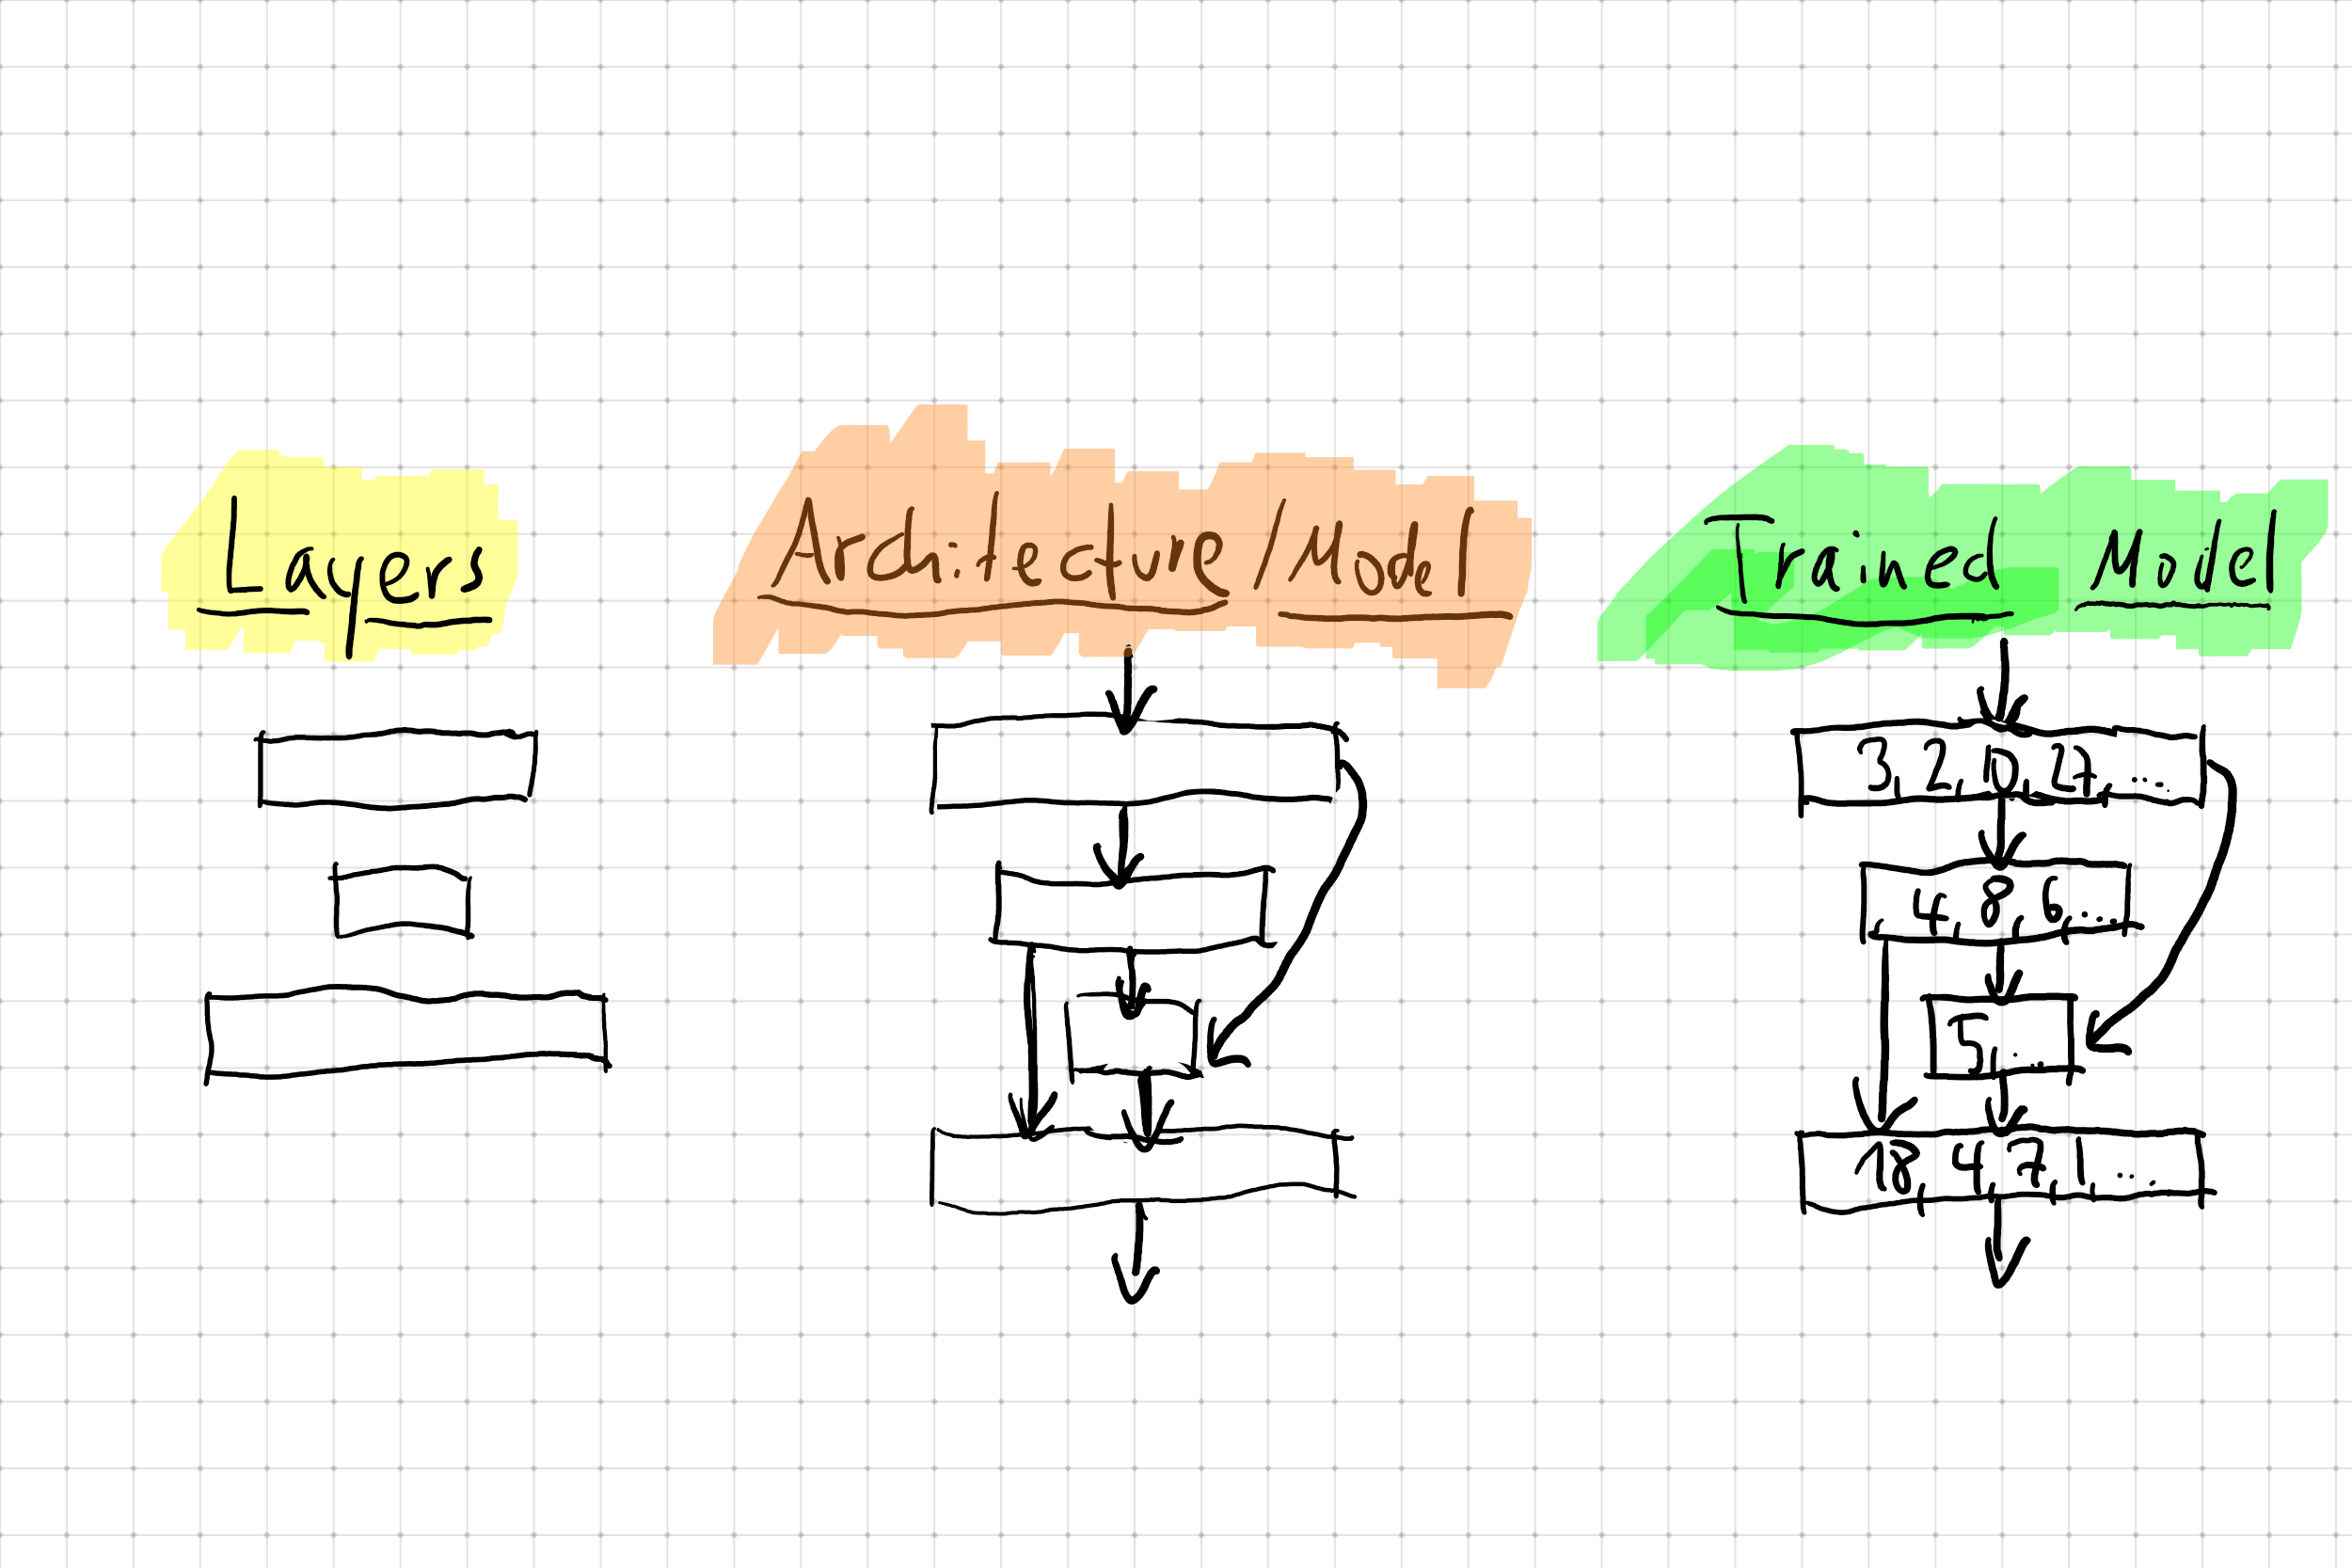 Layers
Architecture/Model
Trained Model
3, 2, 10, 27, ...
4, 8, 6, ...
5, ...
18, 4, 7, 1, ...